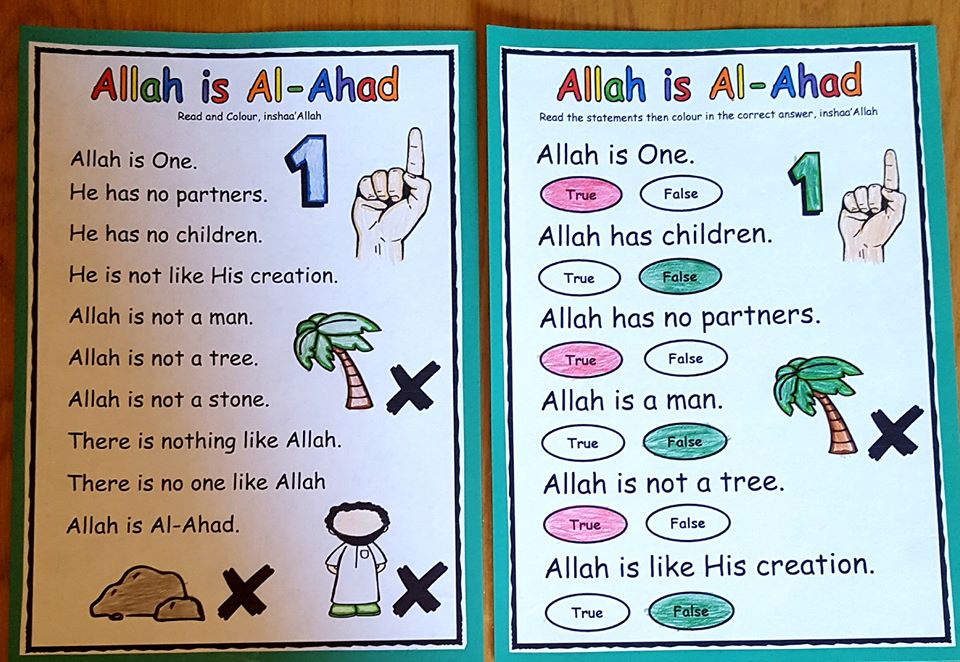 Allah is Al-Ahad
Read and Colour, inshaa'Allah
Allah is One.
1
He has no partners.
He has no children.
He is not like His creation.
Allah is not a man.
Allah is not a tree.
Allah is not a stone.
There is nothing like Allah.
There is no one like Allah
Allah is Al-Ahad.
Allah is Al-Ahad
Read the statements then colour in the correct answer, inshaa'Allah
Allah is One.
1
True False
Allah has children.
True False
Allah has no partners.
True False
Allah is a man.
True False
Allah is not a tree.
True False
Allah is like His creation.
True False